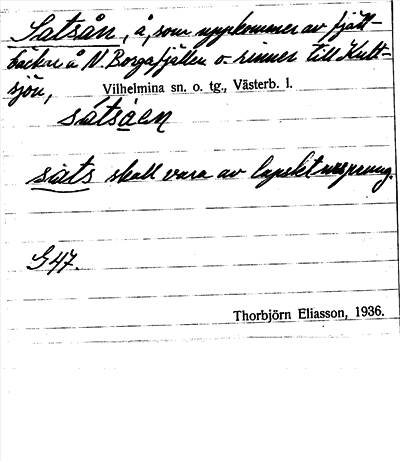 Satsån, å, som uppkommer av fjäll-
bäckar å N. Borgafjällen o. rinner till Kult-
sjön,
Vilhelmina sn. o. tg., Västerb. l.
sátsáen
sáts skall vara av lapskt ursprung.
G 47.
Thorbjörn Eliasson, 1936.